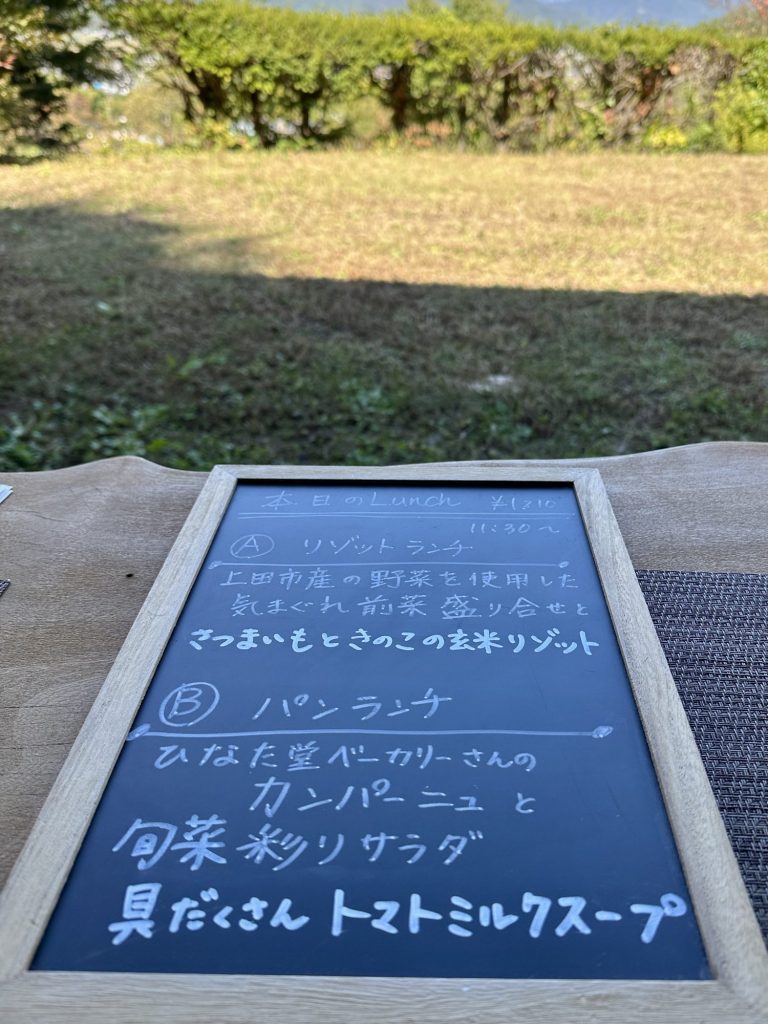 本日のLunch
11:30〜
Ⓐ リゾットランチ
上田市産の野菜を使用した
気まぐれ前菜盛り合せと
さつまいもときのこの玄米リゾット
Ⓑ パンランチ
ひなた堂ベーカリーさんの
カンパーニュと
旬菜彩りサラダ
具だくさんトマトミルクスープ